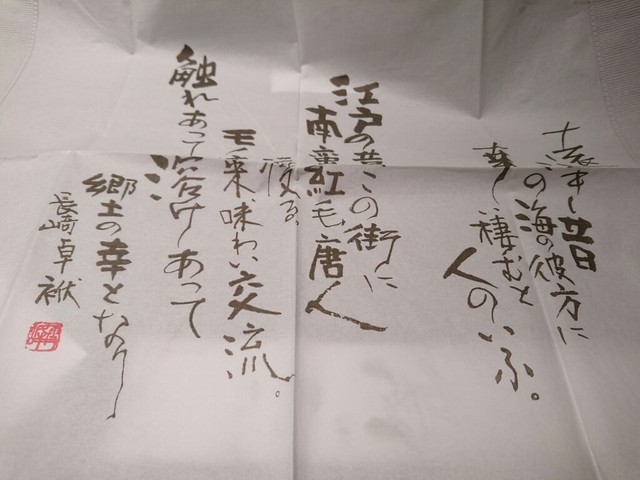 遠し昔
この海の彼方に
幸し棲むと
人のいふ。
江戸の昔この街に
南蛮紅毛唐人
渡る。
味わい交流。
触れあって
溶けしあって
郷土の幸となりし
長崎卓袱